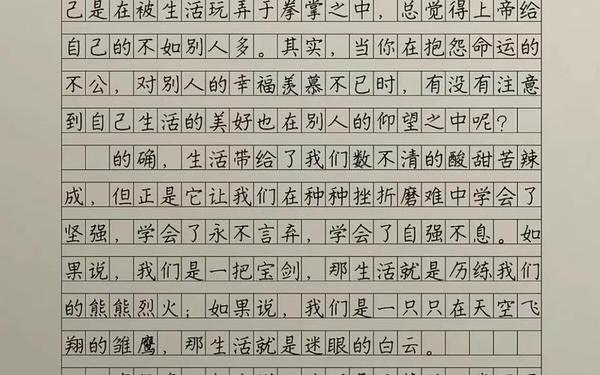 己是在被生活玩弄于拳掌之中，总觉得上帝给
自己的不如别人多。其实，当你在抱怨命运的
不公，对别人的幸福羡慕不已时，有没有注意
到自己生活的美好也在别人的仰望之中呢？
的确，生活带给了我们数不清的酸甜苦辣
成，但正是它让我们在种种挫折磨难中学会了
坚强，学会了永不言弃，学会了自强不息。如
果说，我们是一把宝剑，那生活就是历练我们
的熊熊烈火；如果说，我们是一只只在天空飞
翔的雏鹰，那生活就是迷眼的白云。